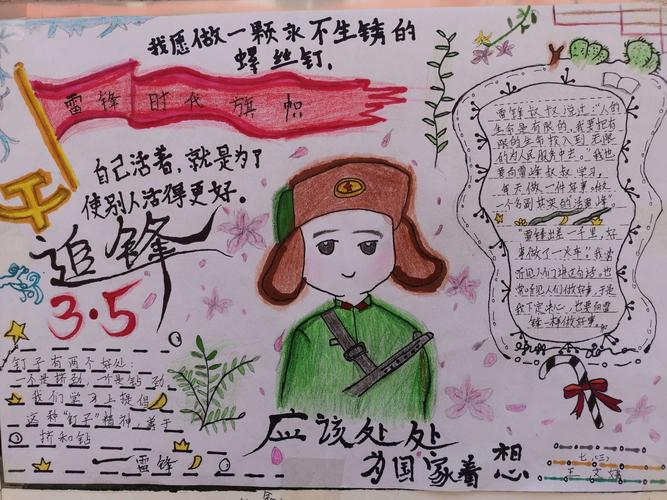 我愿做一颗永不生锈的
螺丝钉,
雷锋时代旗帜
自己活着,就是为了
使别人活得更好。
追锋
3·5
钉子有两个好处:
一个是挤劲,一个是钻劲,
我们学习上提倡
这种"钉子"精神,善于
挤和钻
雷锋
雷锋叔叔说过:"人的
生命是有限的,我要把有
限的生命投入到无限
的为人民服务中去。"我也
要向雷锋叔叔学习,
每天做一件好事,做
一个名副其实的活雷锋。
"雷锋出差一千里,好
事做了一火车。"我常
听见人们这句话,也
常听见人们做好事,于是
我下定决心,也要向雷
锋一样做好事。
应该处处
为国家着想
七(三)
王